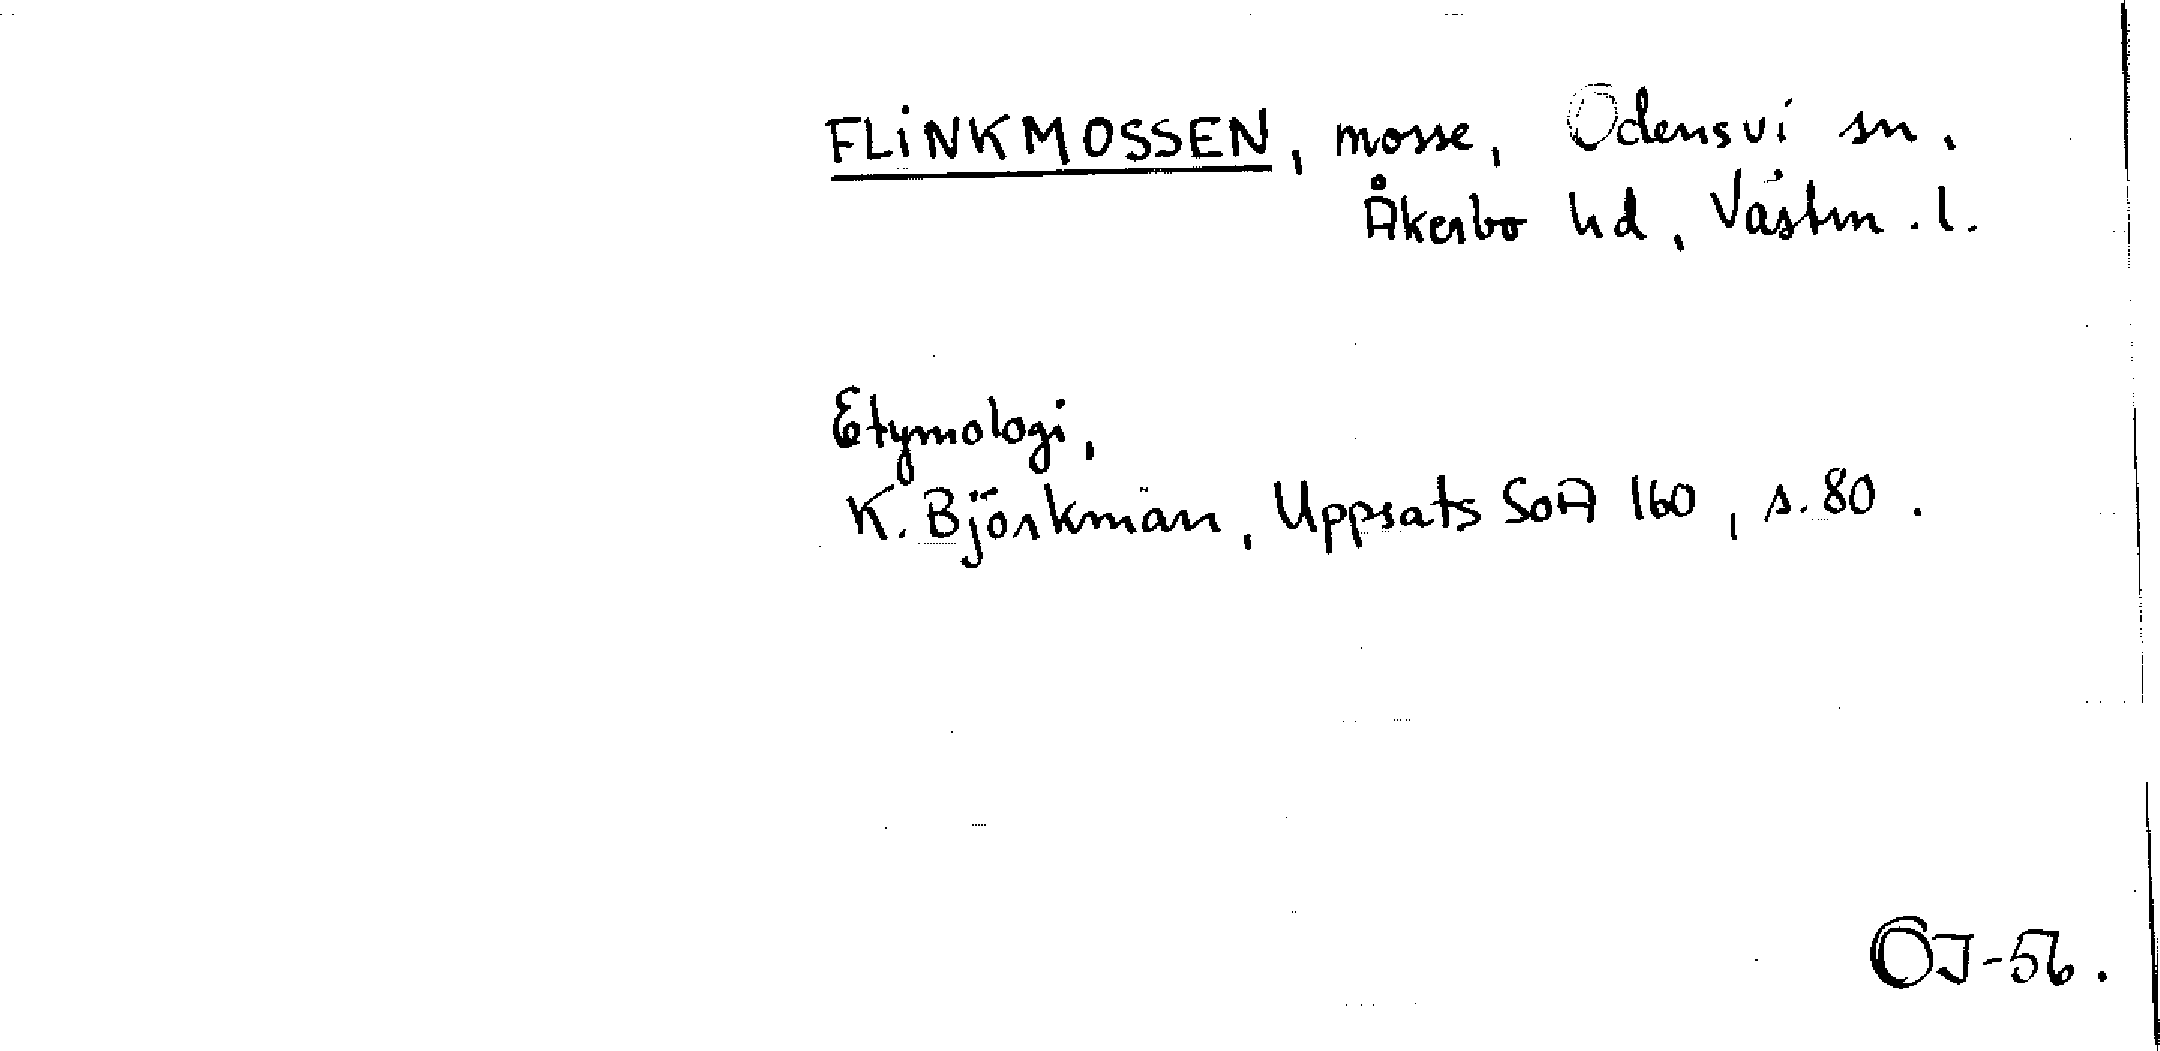 FLINKMOSSEN, mosse, Odensvi sn,
Åkerbo hd, Västm. l.
Etymologi,
K. Björkman, Uppsats SOA 160, s. 80.
OJ-56.